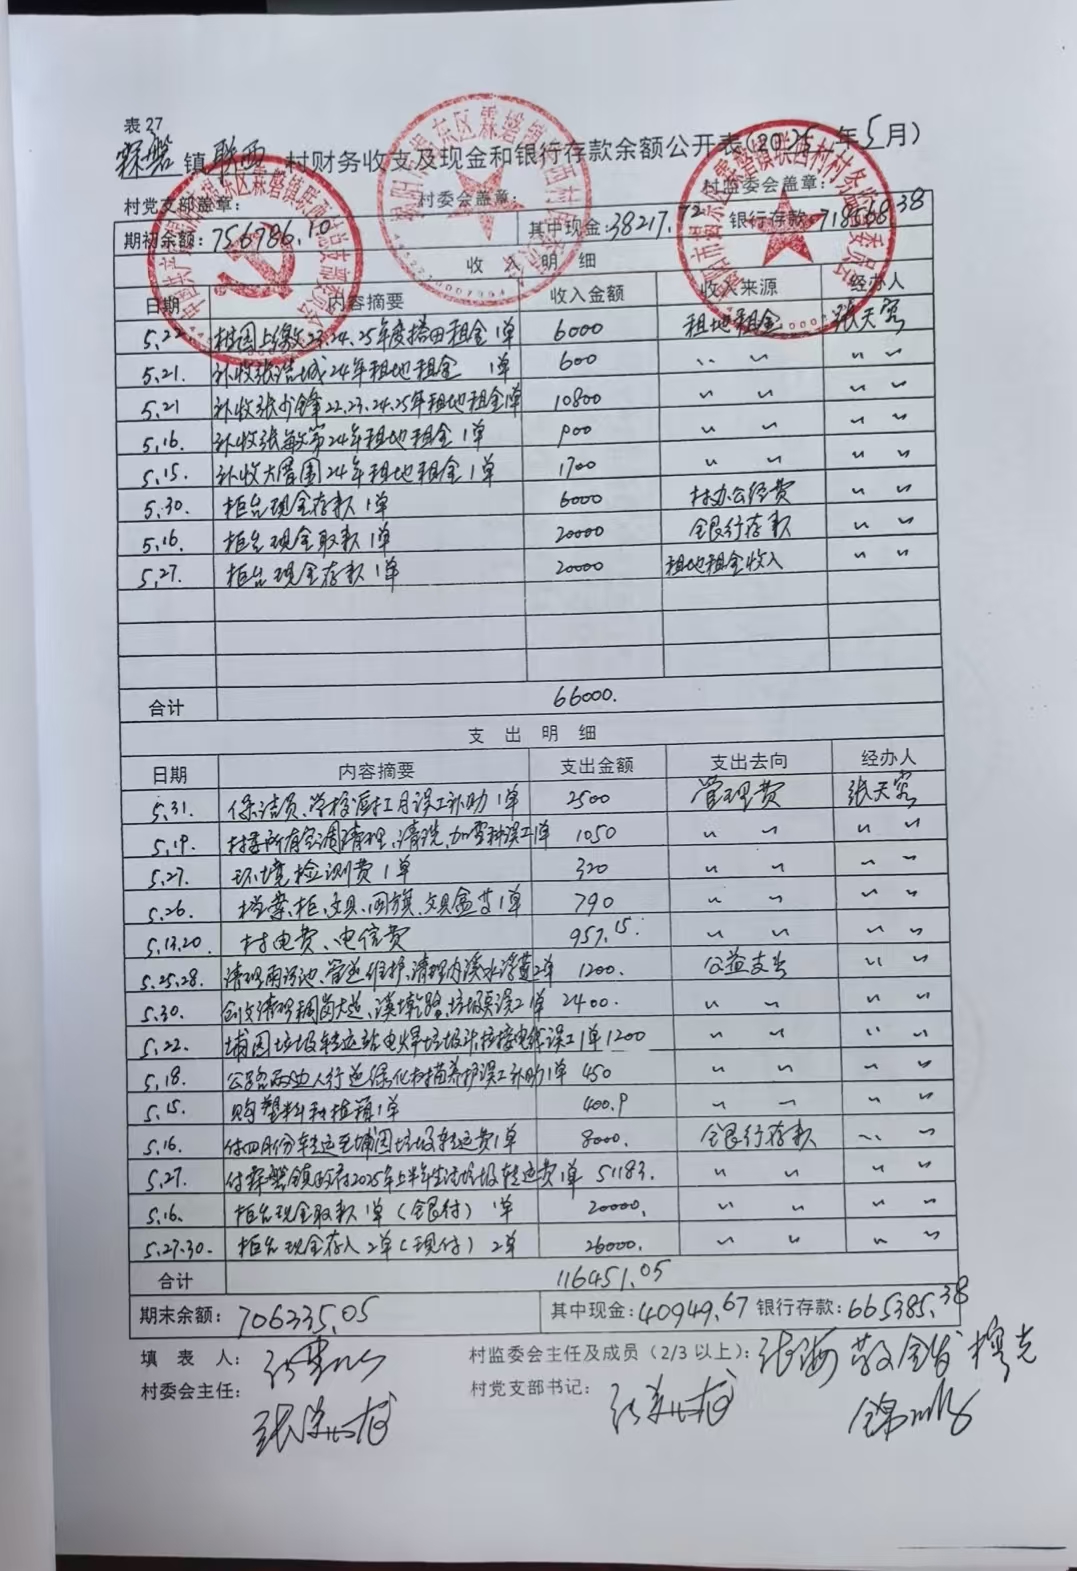 表27
霖磐镇联西村财务收支及现金和银行存款余额公开表(2025年5月)
村党支部盖章: 村委会盖章: 村监委会盖章:
期初余额:756786.10 其中现金:38217.72 银行存款:718568.38
收入明细
日期 内容摘要 收入金额 收入来源 经办人
5.22 24.25年度搭田租金1单 6000 租地租金 张天客
5.21. 补收张 城24年租地租金 1单 600 〃 〃 〃 〃
5.21 补收张少锋22.23.24.25年租地租金1单 10800 〃 〃 〃 〃
5.16. 补收张敏 24年租地租金1单 900 〃 〃 〃 〃
5.15. 补收大 围24年租地租金1单 1700 〃 〃 〃 〃
5.30. 柜台现金存款1单 6000 村办公经费 〃 〃
5.16. 柜台现金取款1单 20000 银行存款 〃 〃
5.27. 柜台现金存款1单 20000 租地租金收入 〃 〃
合计 66000.
支出明细
日期 内容摘要 支出金额 支出去向 经办人
5.31. 保洁员、学校 5月误工补助1单 2500 管理费 张天客
5.19. 村委所有空调清理、清洗、加雪种误工1单 1050 〃 〃 〃 〃
5.27. 环境检测费1单 320 〃 〃 〃 〃
5.26. 档案、柜、文具、国旗、文具盒 1单 790 〃 〃 〃 〃
5.13.20. 村电费、电信费 957.15. 〃 〃 〃 〃
5.25.28. 清理雨污池、管道维护、清理内溪水浮莲2单 1200. 公益支出 〃 〃
5.30. 创文清理 大道、溪墘路、垃圾 误工1单 2400. 〃 〃 〃 〃
5.22. 埔园垃圾转运站电焊垃圾 电 误工1单 1200 〃 〃 〃 〃
5.18. 公路两边人行道绿化树苗养护误工补助1单 450 〃 〃 〃 〃
5.15. 购塑料 箱1单 400.9 〃 〃 〃 〃
5.16. 付四月份转运至埔园垃圾转运费1单 8000. 银行存款 〃 〃
5.27. 付霖磐镇政府2025年上半年生活垃圾转运费1单 51183. 〃 〃 〃 〃
5.16. 柜台现金取款1单(银付) 1单 20000. 〃 〃 〃 〃
5.27.30. 柜台现金存入2单(现付) 2单 26000. 〃 〃 〃 〃
合计 116451.05
期末余额:706335.05 其中现金:40949.67 银行存款:665385.38
填 表 人: 村监委会主任及成员(2/3以上):
村委会主任: 村党支部书记: